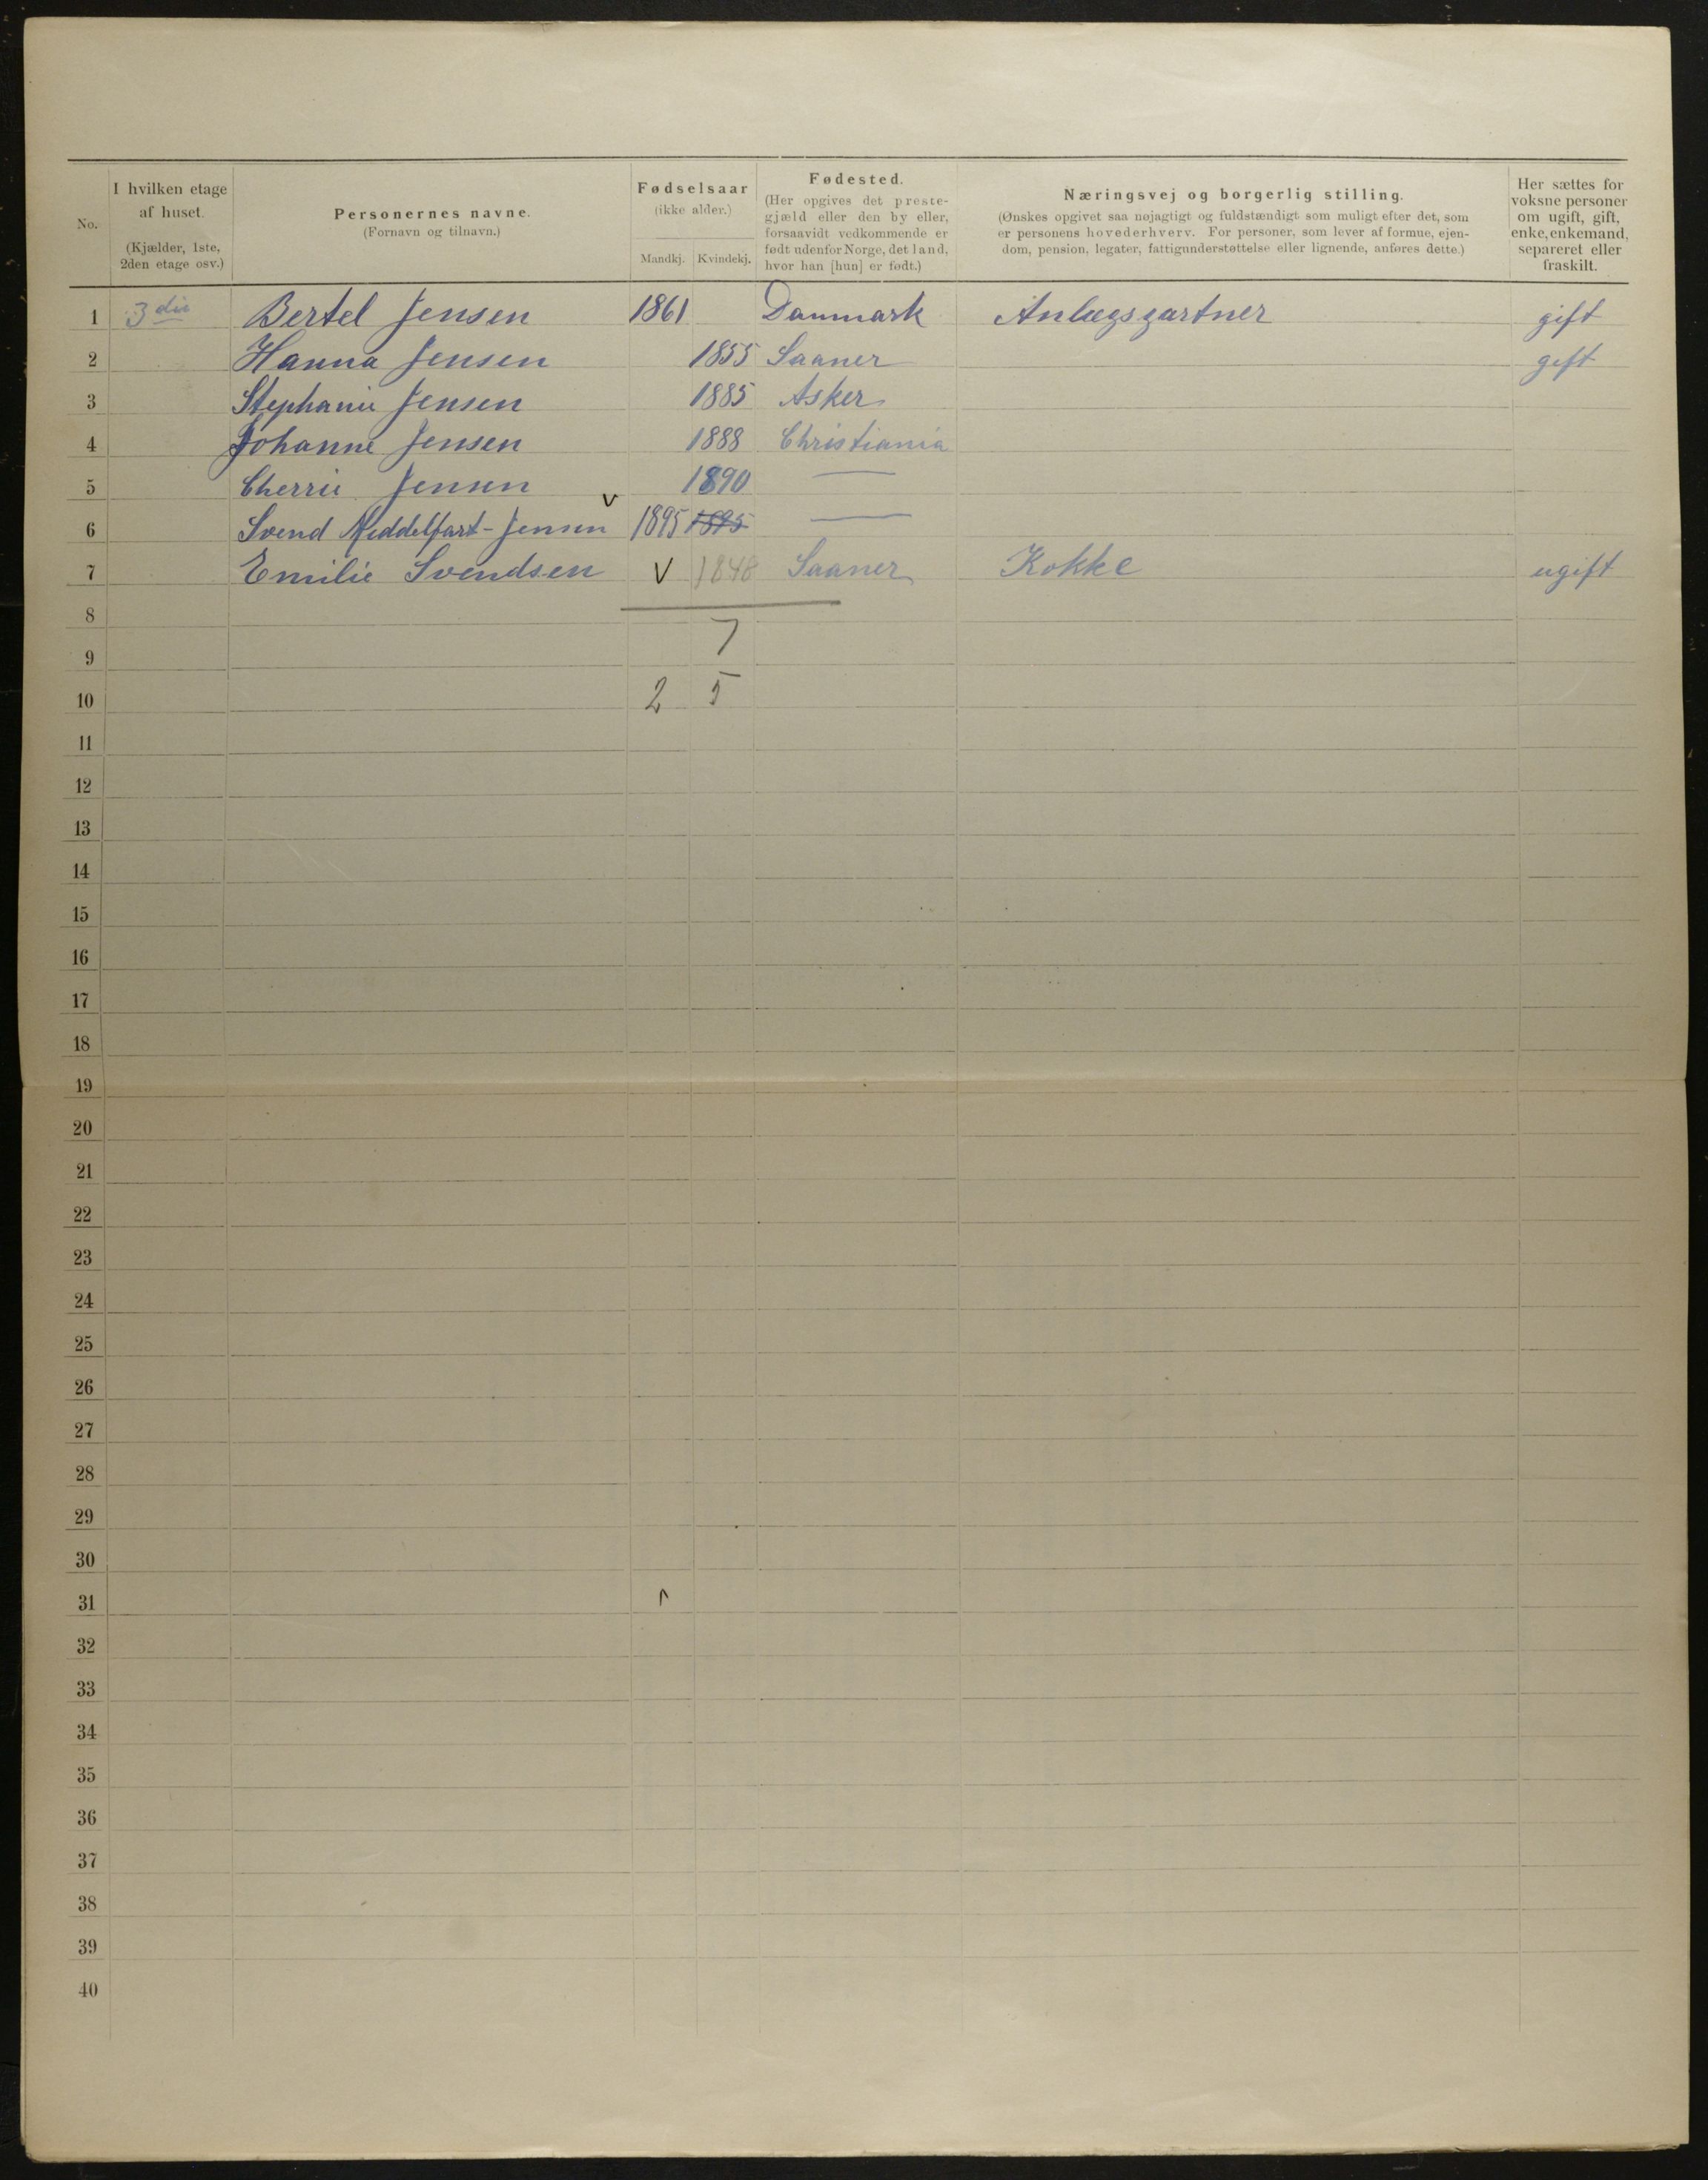 No. | I hvilken etage af huset. (Kjælder, 1ste, 2den etage osv.) | Personernes navne. (Fornavn og tilnavn.) | Fødselsaar (ikke alder.) Mandkj. Kvindekj. | Fødested. (Her opgives det prestegjæld eller den by eller, forsaavidt vedkommende er født udenfor Norge, det land, hvor han [hun] er født.) | Næringsvej og borgerlig stilling. (Ønskes opgivet saa nøjagtigt og fuldstændigt som muligt efter det, som er personens hovederhverv. For personer, som lever af formue, ejendom, pension, legater, fattigunderstøttelse eller lignende, anføres dette.) | Her sættes for voksne personer om ugift, gift, enke, enkemand, separeret eller fraskilt.
1 3die Bertel Jensen 1861 Danmark Anlægsgartner gift
2 Hanna Jensen 1855 Saaner gift
3 Stephanie Jensen 1885 Asker
4 Johanne Jensen 1888 Christiania
5 Cherrie Jensen 1890 —
6 Svend Middelfart-Jensen v 1895 1895 —
7 Emilie Svendsen v 1848 Saaner Kokke ugift
8
9 7
10 2 5
11
12
13
14
15
16
17
18
19
20
21
22
23
24
25
26
27
28
29
30
31
32
33
34
35
36
37
38
39
40